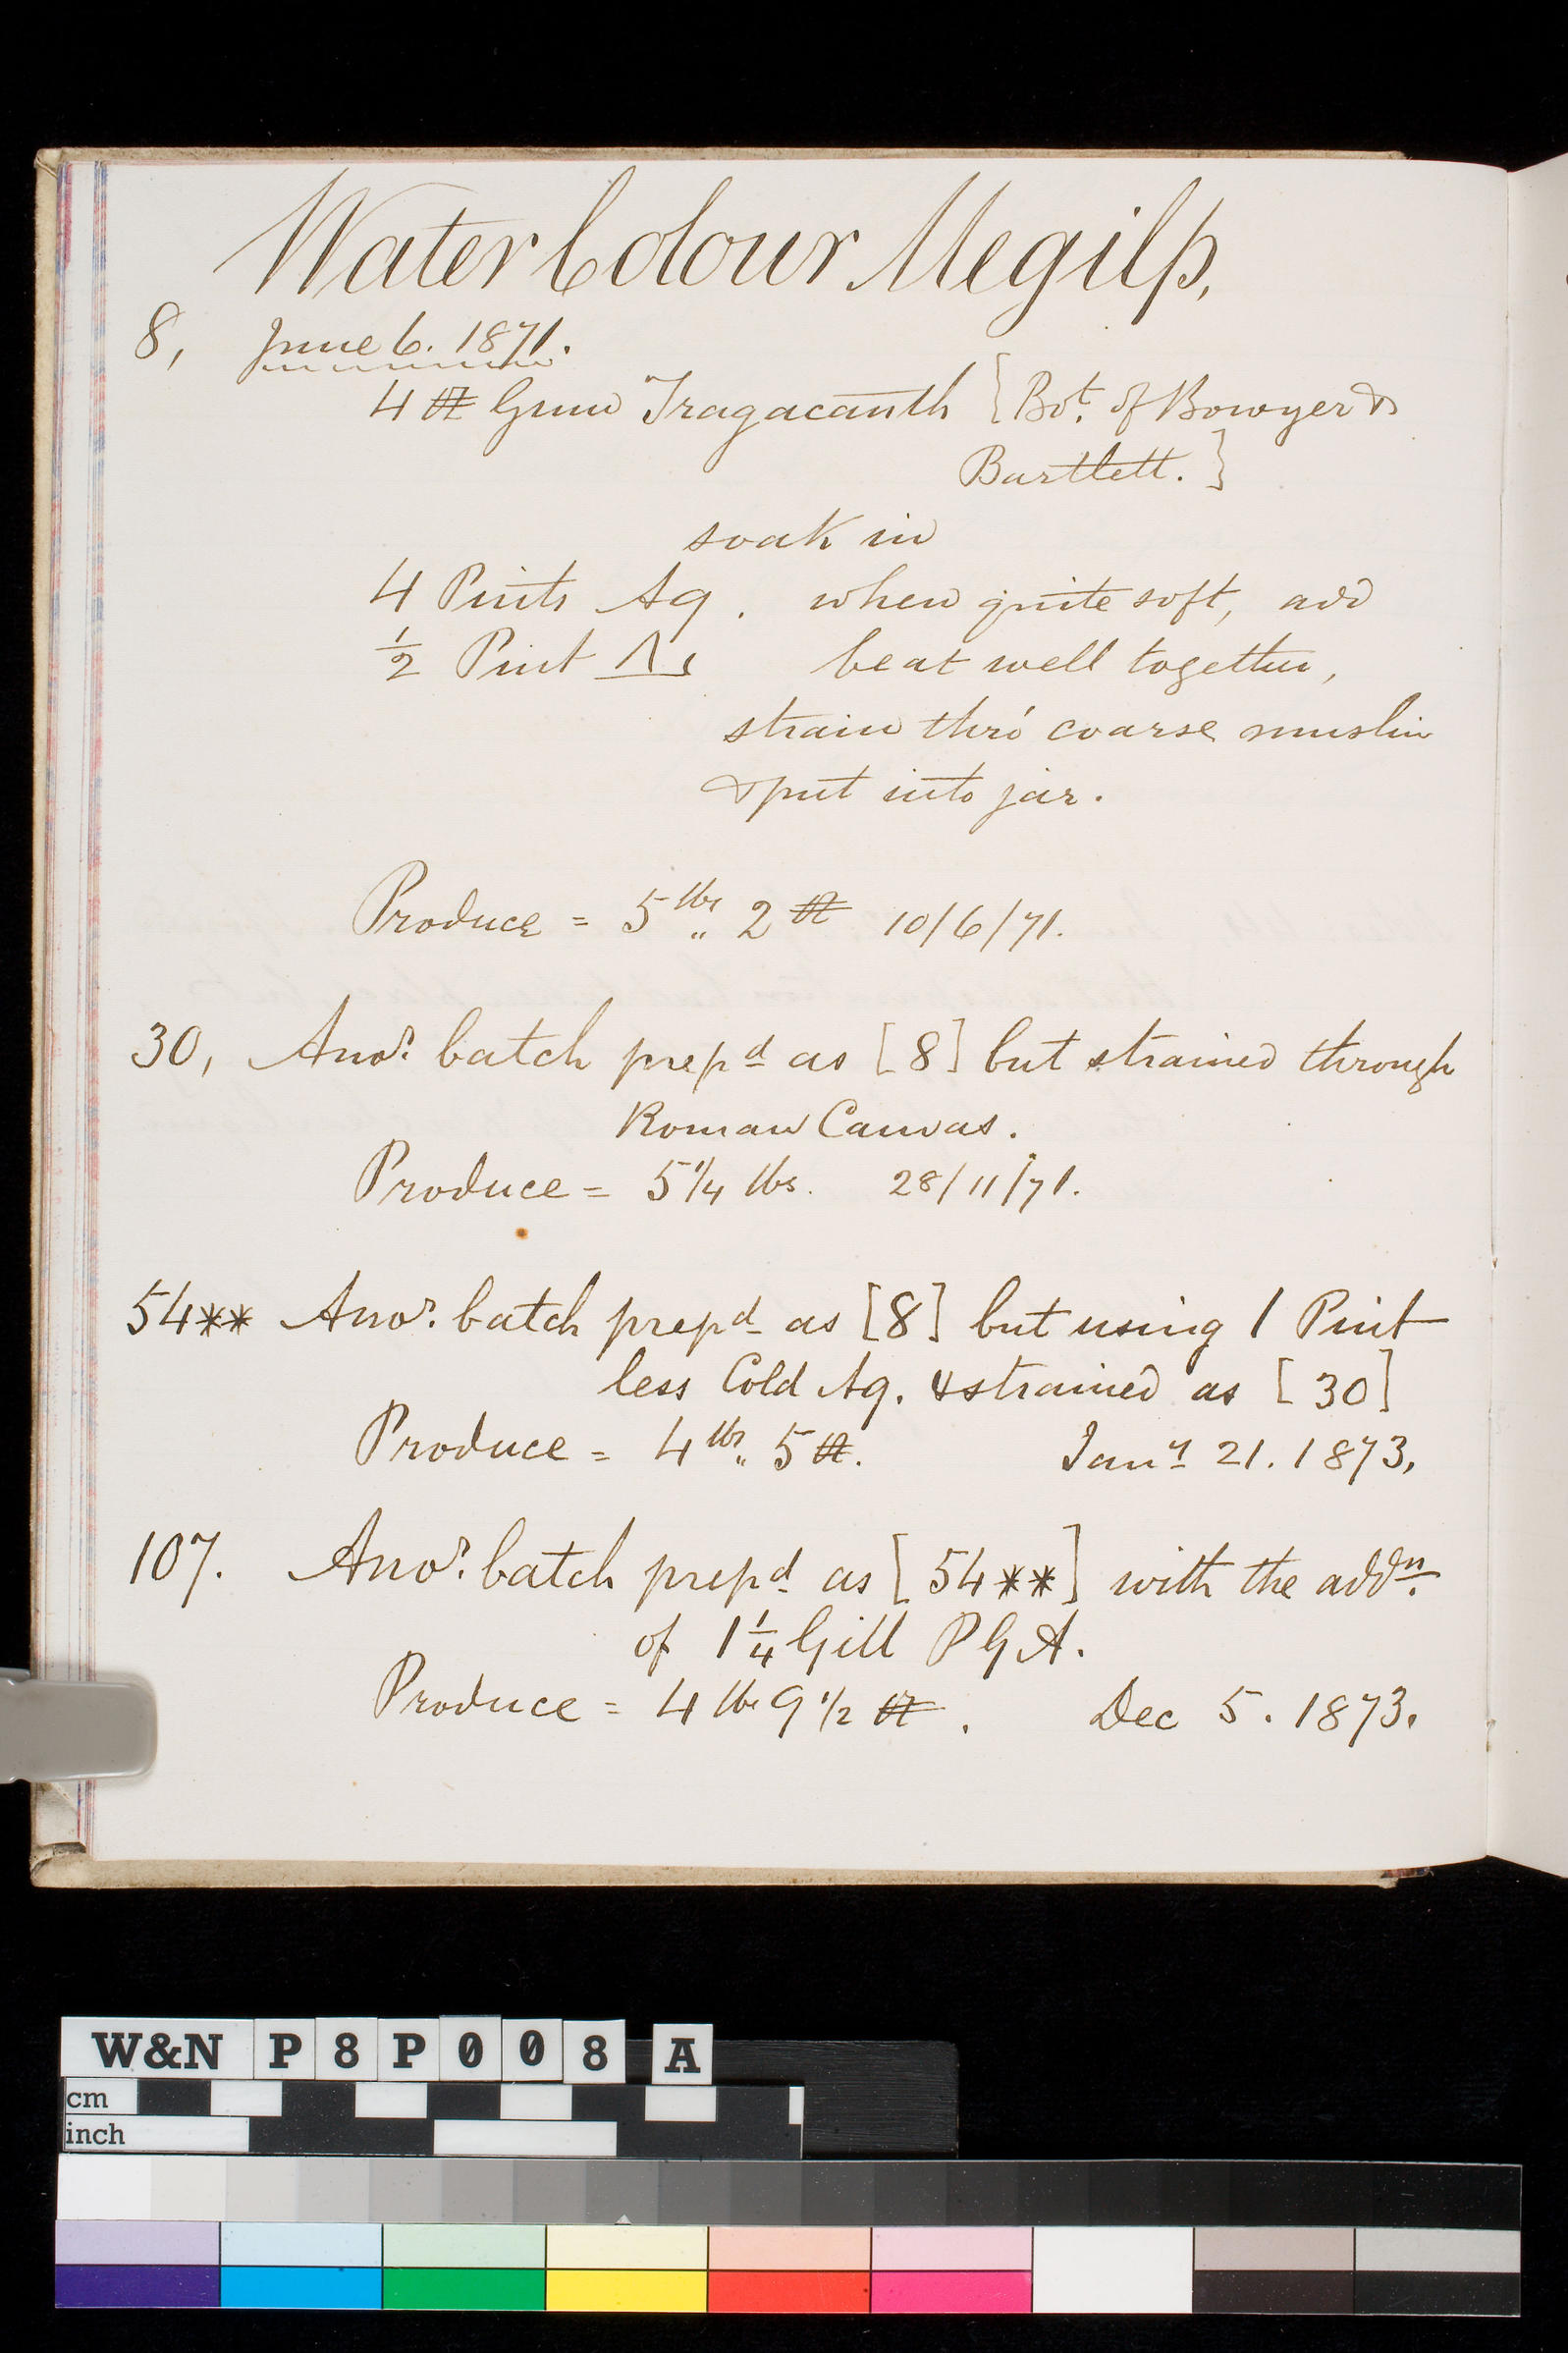 Water Colour Megilp,
8, June 6. 1871.
4 ℔ Gum Tragacanth [Bot. of Bowyer &
Bartlett.]
soak in
4 Pints Aq. when quite soft, add
1/2 Pint beat well together,
strain thro' coarse muslin
& put into jar.
Produce = 5 lbs „ 2 10/6/71.
30, Anor. batch prepd as [8] but strained through
Roman Canvas.
Produce = 5 1/4 lbs. 28/11/71.
54** Anor. batch prepd as [8] but using 1 Pint
less Cold Aq. & strained as [30]
Produce = 4 lbs „ 5 Jany 21. 1873,
107. Anor. batch prepd as [54**] with the addn.
of 1 1/4 Gill P G A.
Produce = 4 lbs 9 1/2 Dec 5. 1873.
W&N P 8 P 0 0 8 A
cm
inch